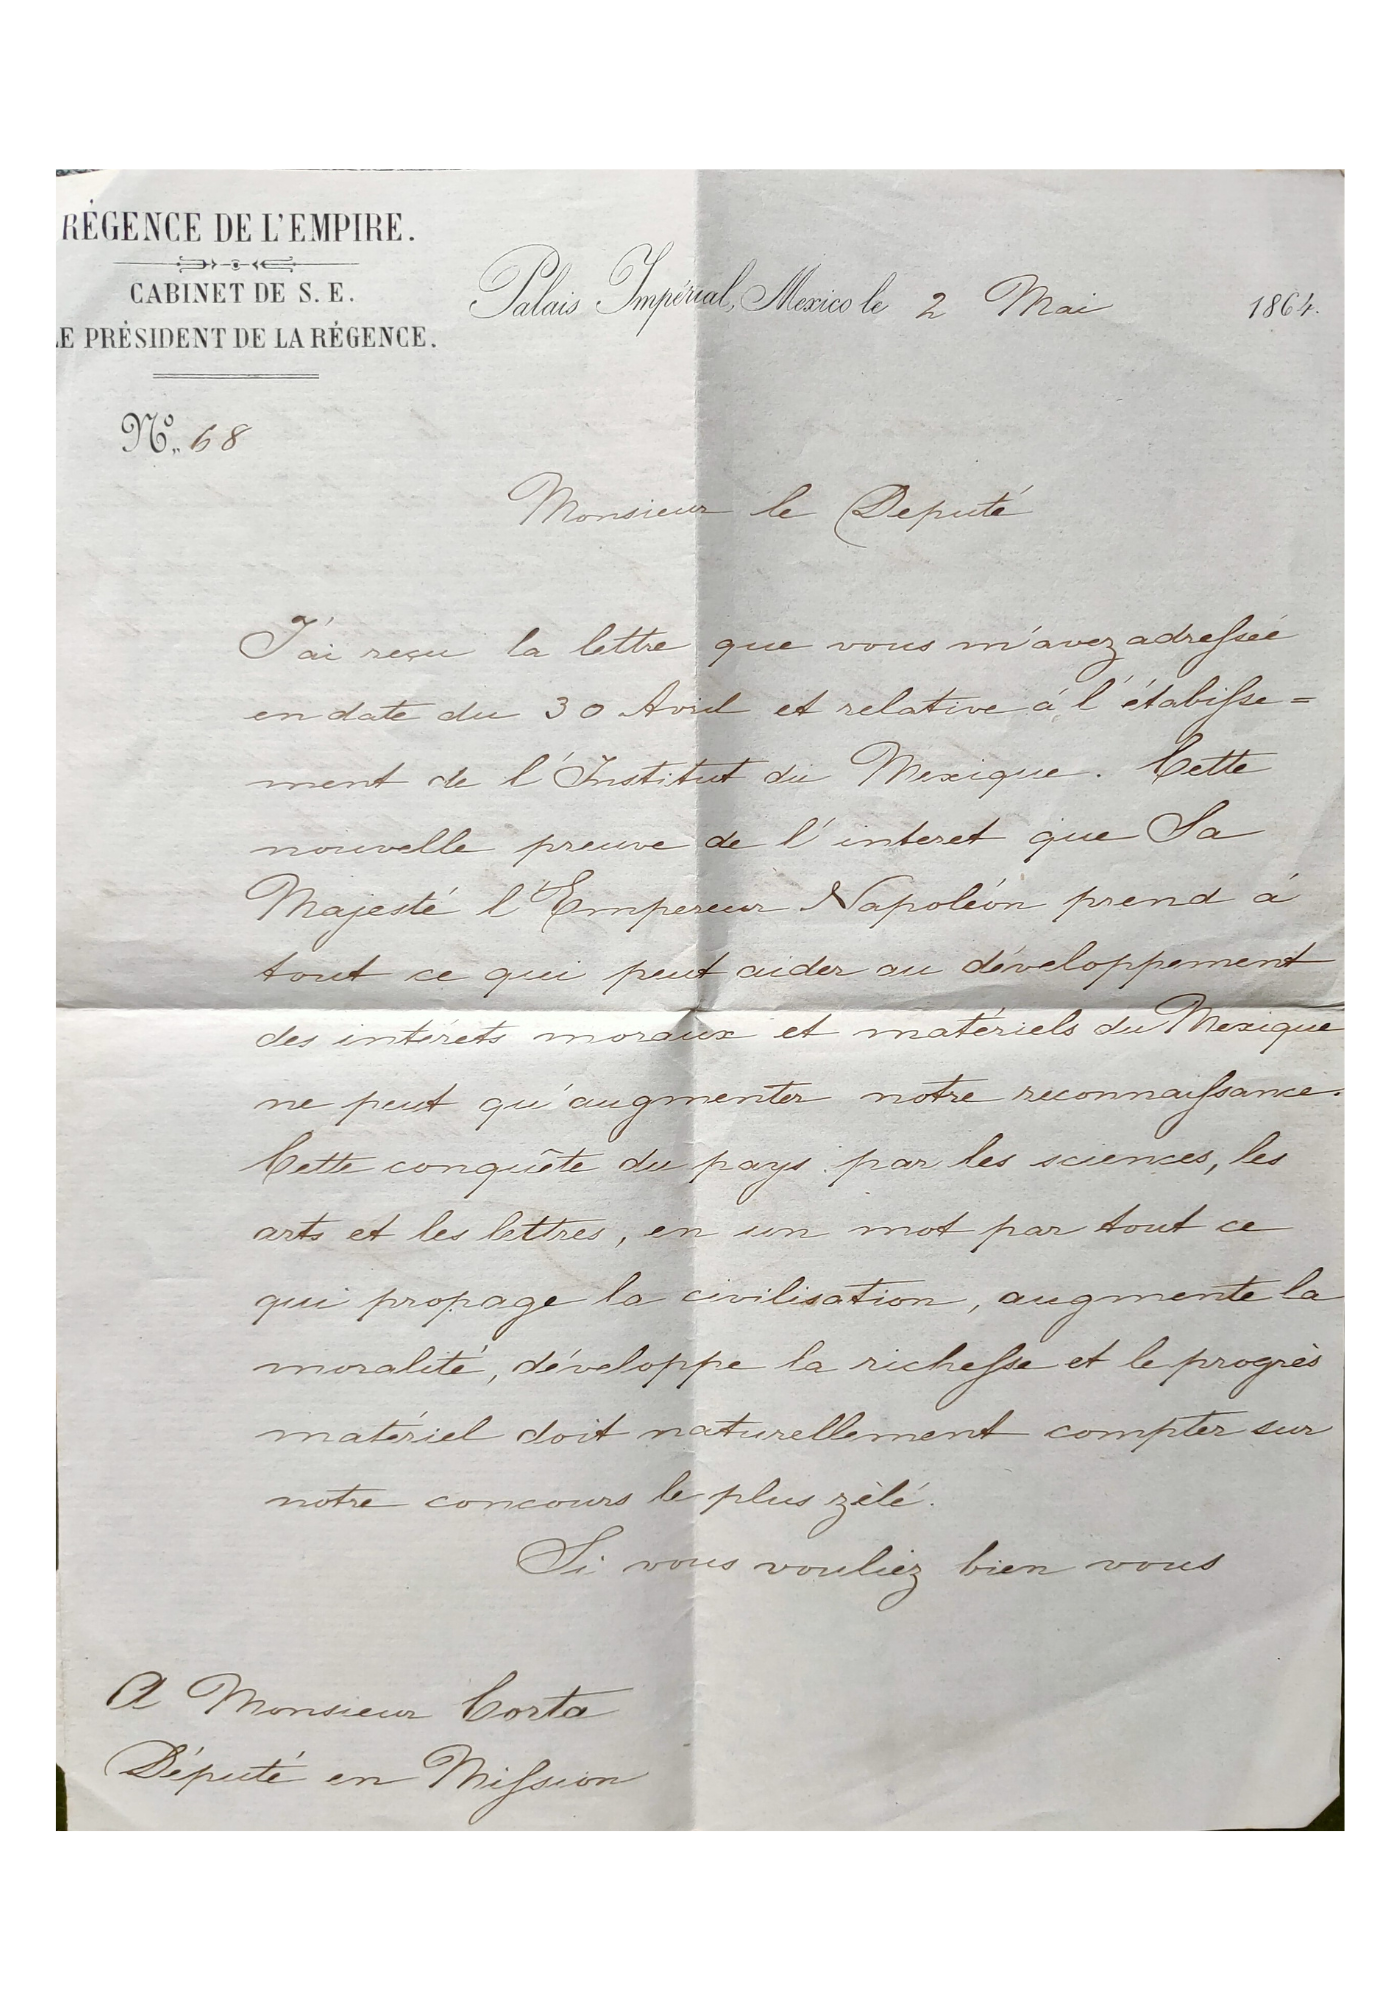 RÉGENCE DE L'EMPIRE.
CABINET DE S. E.
LE PRÉSIDENT DE LA RÉGENCE.
Palais Impérial, Mexico le 2 Mai 1864.
Nº. 68
Monsieur le Deputé
J'ai reçu la lettre que vous m'avez adressée
en date du 30 Avril et relative á l'étabisse=
ment de l'Institut du Mexique. Cette
nouvelle preuve de l'interet que Sa
Majesté l'Empereur Napoléon prend á
tout ce qui peut aider au développement
des intérets moraux et matériels du Mexique
ne peut qu'augmenter notre reconnaissance.
Cette conquête du pays par les sciences, les
arts et les lettres, en un mot par tout ce
qui propage la civilisation, augmente la
moralité, développe la richesse et le progrès
matériel doit naturellement compter sur
notre concours le plus zèlé.
Si vous vouliez bien vous
A Monsieur Corta
Député en Mission